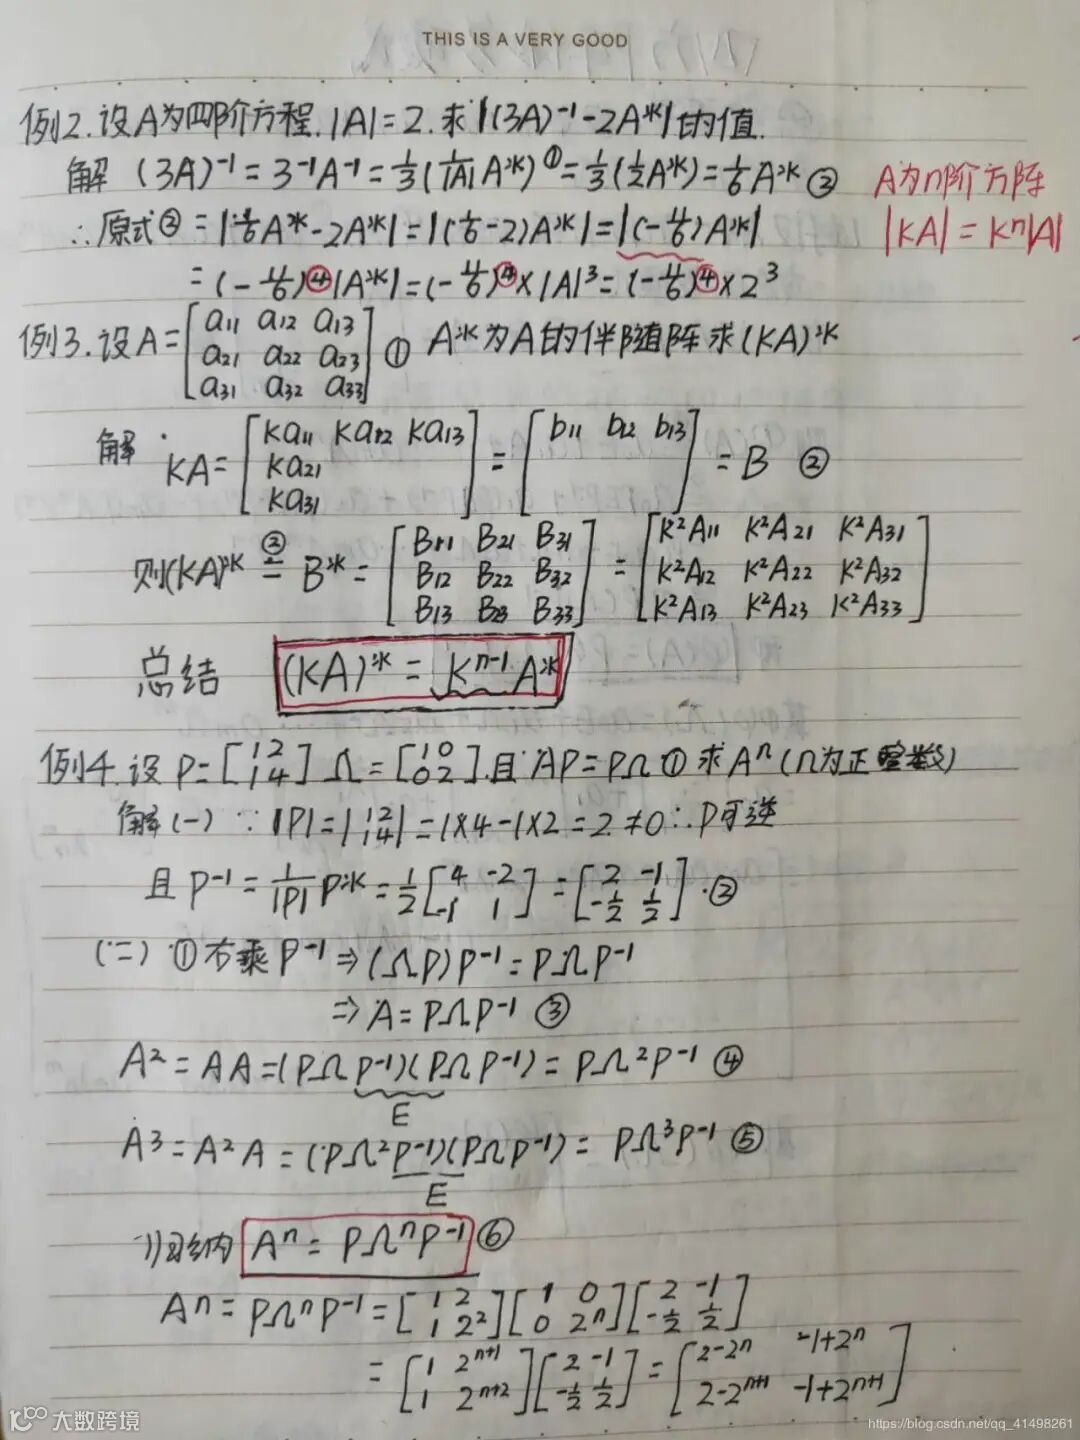 THIS IS A VERY GOOD
例2.设A为四阶方程.|A|=2.求|(3A)⁻¹-2A*|的值.
解 (3A)⁻¹=3⁻¹A⁻¹=1/3(1/|A| A*)①=1/3(1/2A*)=1/6A* ②
A为n阶方阵
∴原式②=|1/6A*-2A*|=|(1/6-2)A*|=|(-11/6)A*|
|KA|=Kⁿ|A|
=(-11/6)④|A*|=(-11/6)④×|A|³=(-11/6)④×2³
例3.设A=[a₁₁ a₁₂ a₁₃
a₂₁ a₂₂ a₂₃
a₃₁ a₃₂ a₃₃] ① A*为A的伴随阵求(KA)*
解 KA=[Ka₁₁ Ka₁₂ Ka₁₃
Ka₂₁
Ka₃₁]=[b₁₁ b₁₂ b₁₃]=B ②
则(KA)*②=B*=[B₁₁ B₂₁ B₃₁
B₁₂ B₂₂ B₃₂
B₁₃ B₂₃ B₃₃]=[K²A₁₁ K²A₂₁ K²A₃₁
K²A₁₂ K²A₂₂ K²A₃₂
K²A₁₃ K²A₂₃ K²A₃₃]
总结 (KA)*=Kⁿ⁻¹A*
例4.设P=[1 2
1 4] Ω=[1 0
0 2].且AP=PΩ① 求Aⁿ(n为正整数)
解(一) ∵|P|=|1 2
1 4|=1×4-1×2=2≠0∴P可逆
且P⁻¹=1/|P| P*=1/2[4 -2
-1 1]=[2 -1
-1/2 1/2].②
(二) ①右乘P⁻¹⇒(ΩP)P⁻¹=PΩP⁻¹
⇒A=PΩP⁻¹ ③
A²=AA=(PΩP⁻¹)(PΩP⁻¹)=PΩ²P⁻¹ ④
E
A³=A²A=(PΩ²P⁻¹)(PΩP⁻¹)=PΩ³P⁻¹ ⑤
E
归纳 Aⁿ=PΩⁿP⁻¹ ⑥
Aⁿ=PΩⁿP⁻¹=[1 2
1 2²][1 0
0 2ⁿ][2 -1
-1/2 1/2]
=[1 2ⁿ⁺¹
1 2ⁿ⁺²][2 -1
-1/2 1/2]=[2-2ⁿ -1+2ⁿ
2-2ⁿ⁺¹ -1+2ⁿ⁺¹]
大数跨境
https://blog.csdn.net/qq_41498261